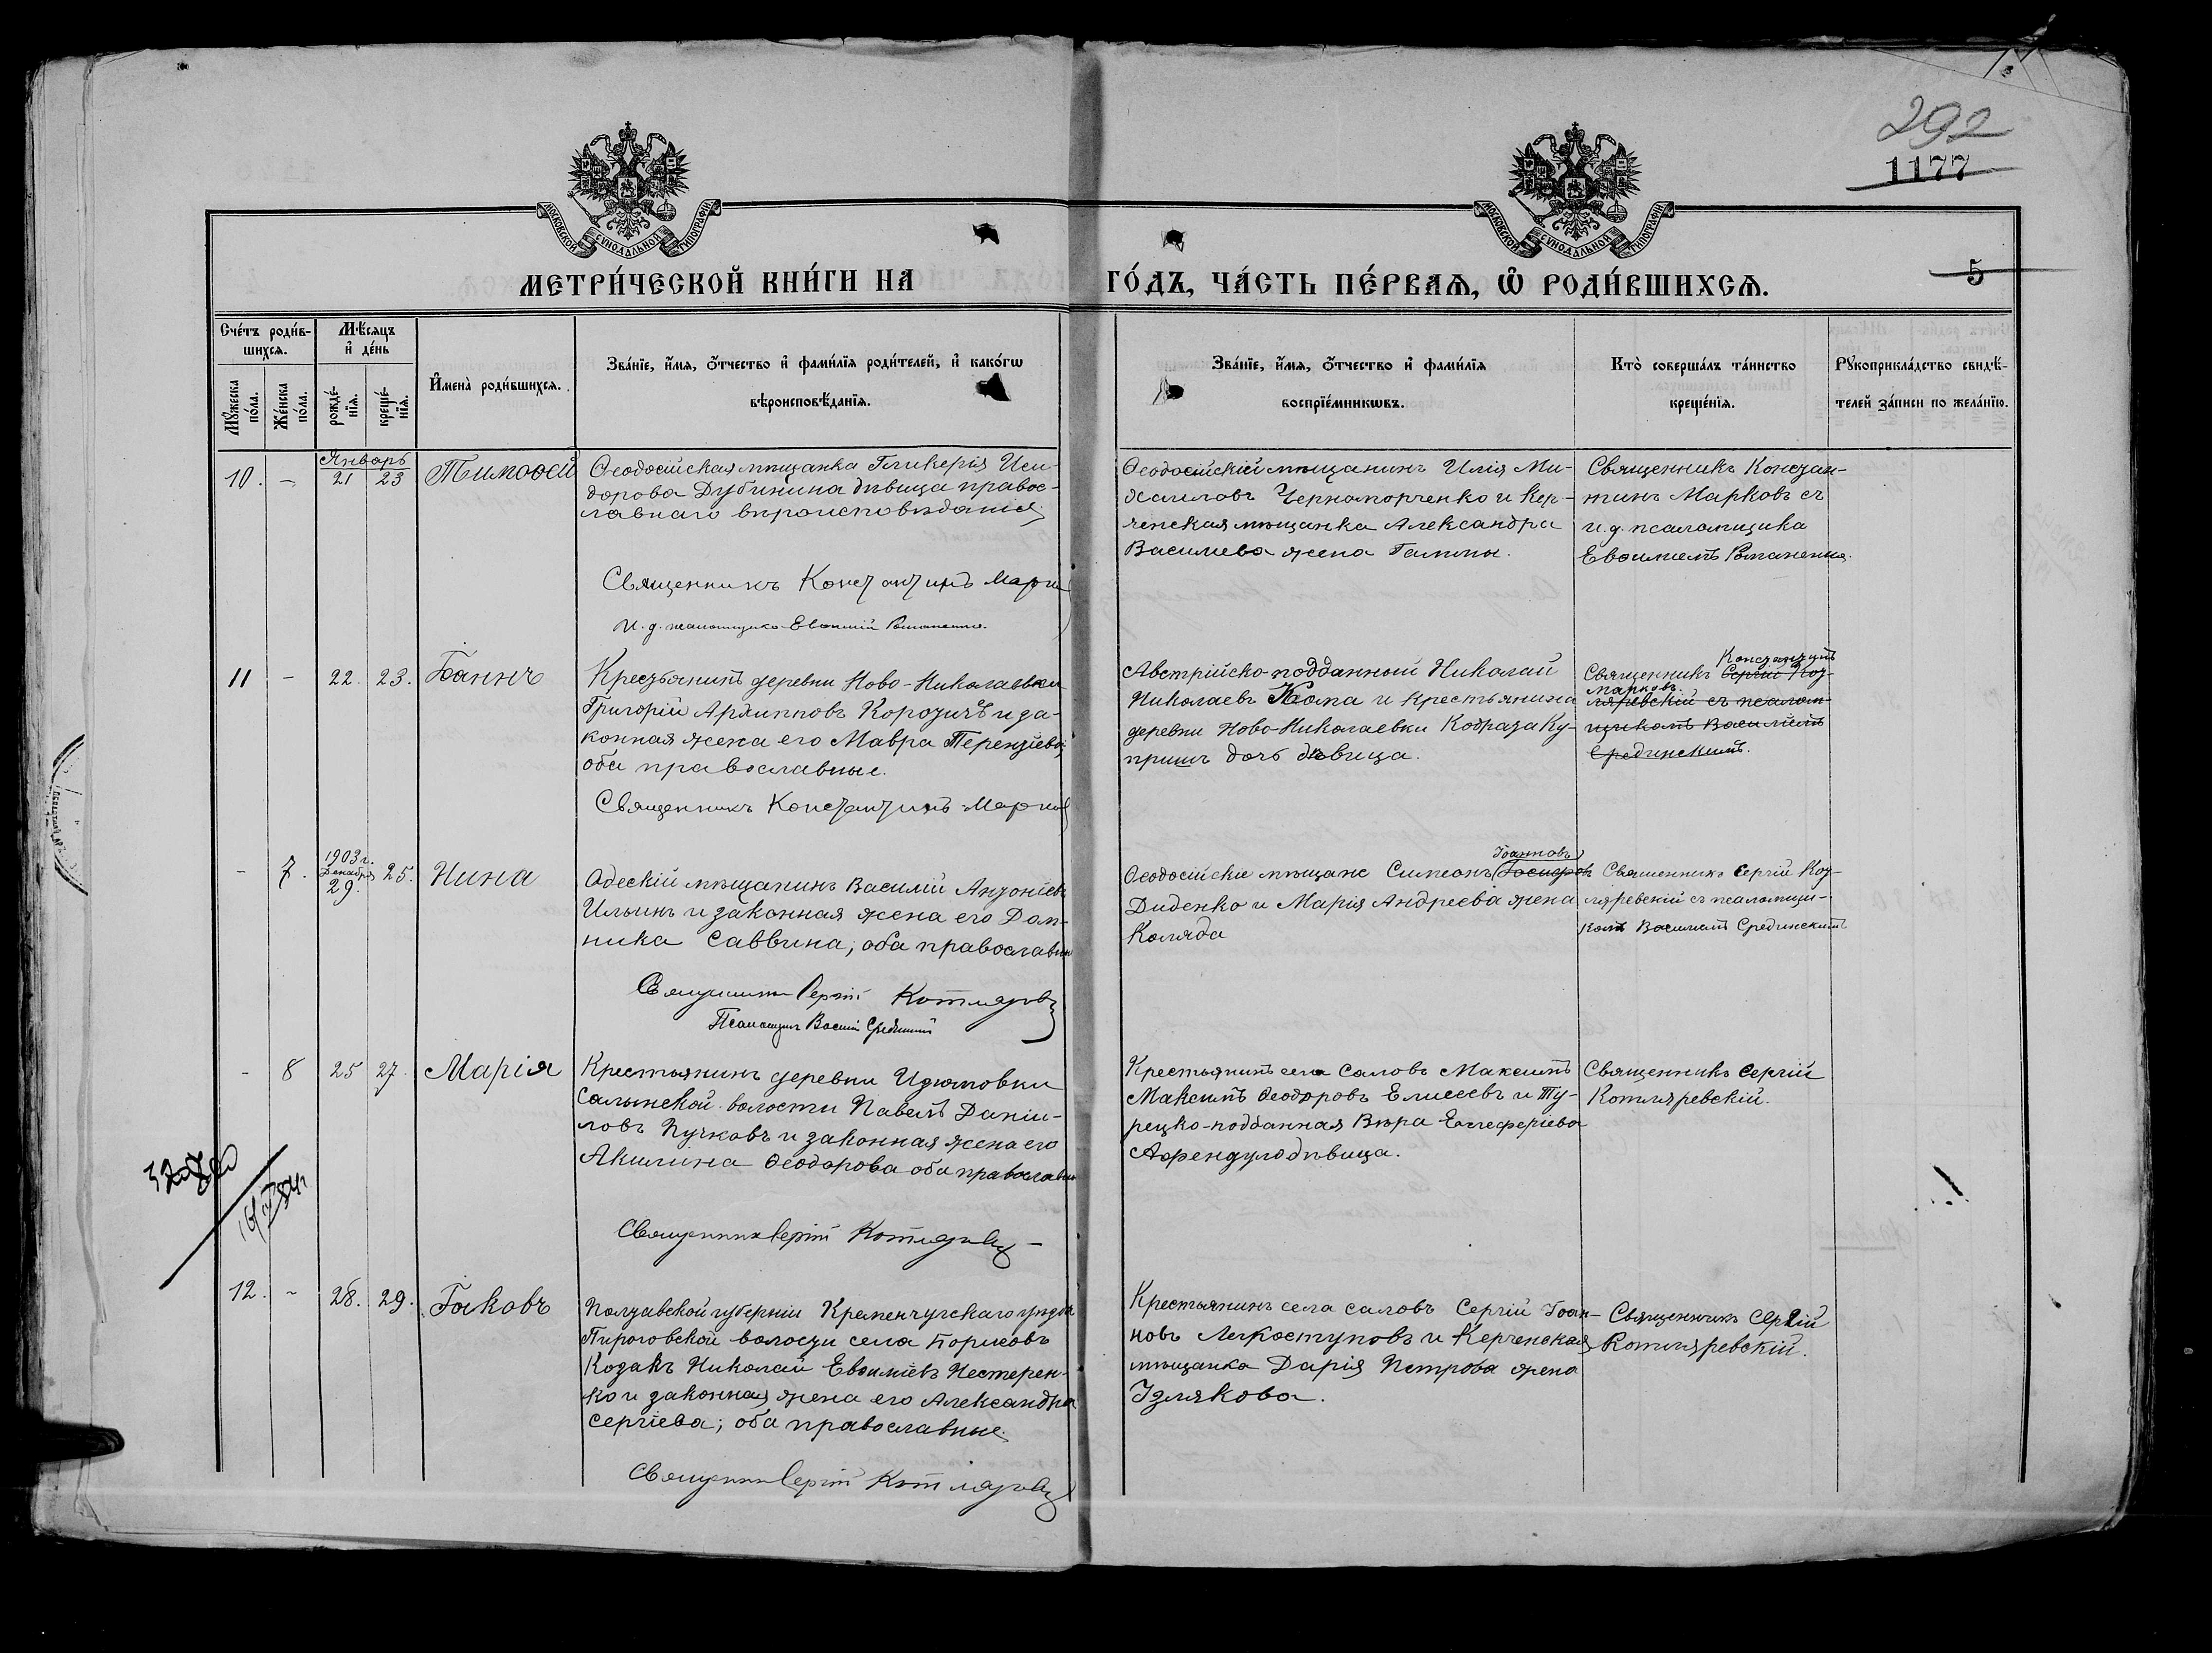 292
1177
МОСКОВСКОЙ СУНОДАЛЬНОЙ ТИПОГРАФІИ
МОСКОВСКОЙ СУНОДАЛЬНОЙ ТИПОГРАФІИ
МЕТРИ́ЧЕСКОЙ КНИ́ГИ НА ГО́ДЪ, ЧА́СТЬ ПЕ́РВАѦ, Ѡ҆ РОДИ́ВШИХСѦ.
5
Сче́тъ роди́в-
шихсѧ.
Мꙋ́жеска
по́ла.
Же́нска
по́ла.
Мѣ́сѧцъ
и҆ де́нь
рожде́-
нїѧ.
креще́-
нїѧ.
И҆мена̀ роди́вшихсѧ.
Зва́нїе, и҆́мѧ, ѻ҆́тчество и҆ фами́лїѧ роди́телей, и҆ како́гѡ
вѣроисповѣ́данїѧ.
Зва́нїе, и҆́мѧ, ѻ҆́тчество и҆ фами́лїѧ
воспрїе́мникѡвъ.
Кто̀ соверша́лъ та́инство
креще́нїѧ.
Рꙋкоприкла́дство свидѣ́-
телей за́писи по жела́нїю.
Январь
10. - 21 23 Тимоѳей
Ѳеодосійская мѣщанка Гликерія Иси-
дорова Дубинина дѣвица правос-
лавнаго вѣроисповѣданія
Священникъ Константинъ Марков
И. д. псаломщика Евѳимій Романенко.
Ѳеодосійскій мѣщанинъ Илія Ми-
хаиловъ Черноморченко и Кер-
ченская мѣщанка Александра
Василиева жена Гаммы.
Священникъ Констан-
тинъ Марковъ съ
и. д. псаломщика
Евѳимемъ Романенко.
11 - 22. 23. Іоаннъ
Крестьянинъ деревни Ново-Николаевки
Григорій Архипповъ Коротичъ и за-
конная жена его Мавра Терентіева;
оба православные.
Священникъ Константинъ Марков
Австрійско-подданный Николай
Николаевъ Кома и крестьянина
деревни Ново-Николаевки Кодрата Ку-
приш дочь дѣвица.
Константинъ
Священникъ Сергій Кот-
Марковъ.
ляревскій съ псалом-
щикомъ Василіемъ
Срединскимъ.
1903 г.
Декабря
- 7. 29. 25. Нина
Одескій мѣщанинъ Василій Антоніевъ
Ильинъ и законная жена его Дом-
ника Саввина; оба православны
Священник Сергій Котляревск
Псаломщик Василій Срединский
Іоанновъ
Ѳеодосійскіе мѣщане Симеонъ
Диденко и Марія Андреева жена
Коляда
Священникъ Сергій Кот-
ляревскій съ псаломщи-
комъ Василіемъ Срединскимъ
- 8 25 27 Марія
Крестьянинъ деревни Изюмовки
Салынской волости Павелъ Даніи-
ловъ Пучковъ и законная жена его
Акилина Ѳеодорова оба православн
Священник Сергій Котляревск
Крестьянинъ села Саловъ Максимъ
Максимъ Ѳеодоровъ Елисеевъ и Ту-
рецко-подданная Вѣра Елеферіева
Аѳендуло дѣвица.
Священникъ Сергій
Котляревскій.
12. - 28. 29. Іаковъ
Полтавской губерніи Кременчугскаго уѣзда
Пироговской волости села Борисовъ
Козакъ Николай Евѳиміевъ Нестерен-
ко и законная жена его Александра
Сергіева; оба православные.
Священник Сергій Котляревск
Крестьянинъ села Саловъ Сергій Іоан-
новъ Легкоступовъ и Керченская
мѣщанка Дарія Петрова жена
Излякова.
Священникъ Сергій
Котляревскій.